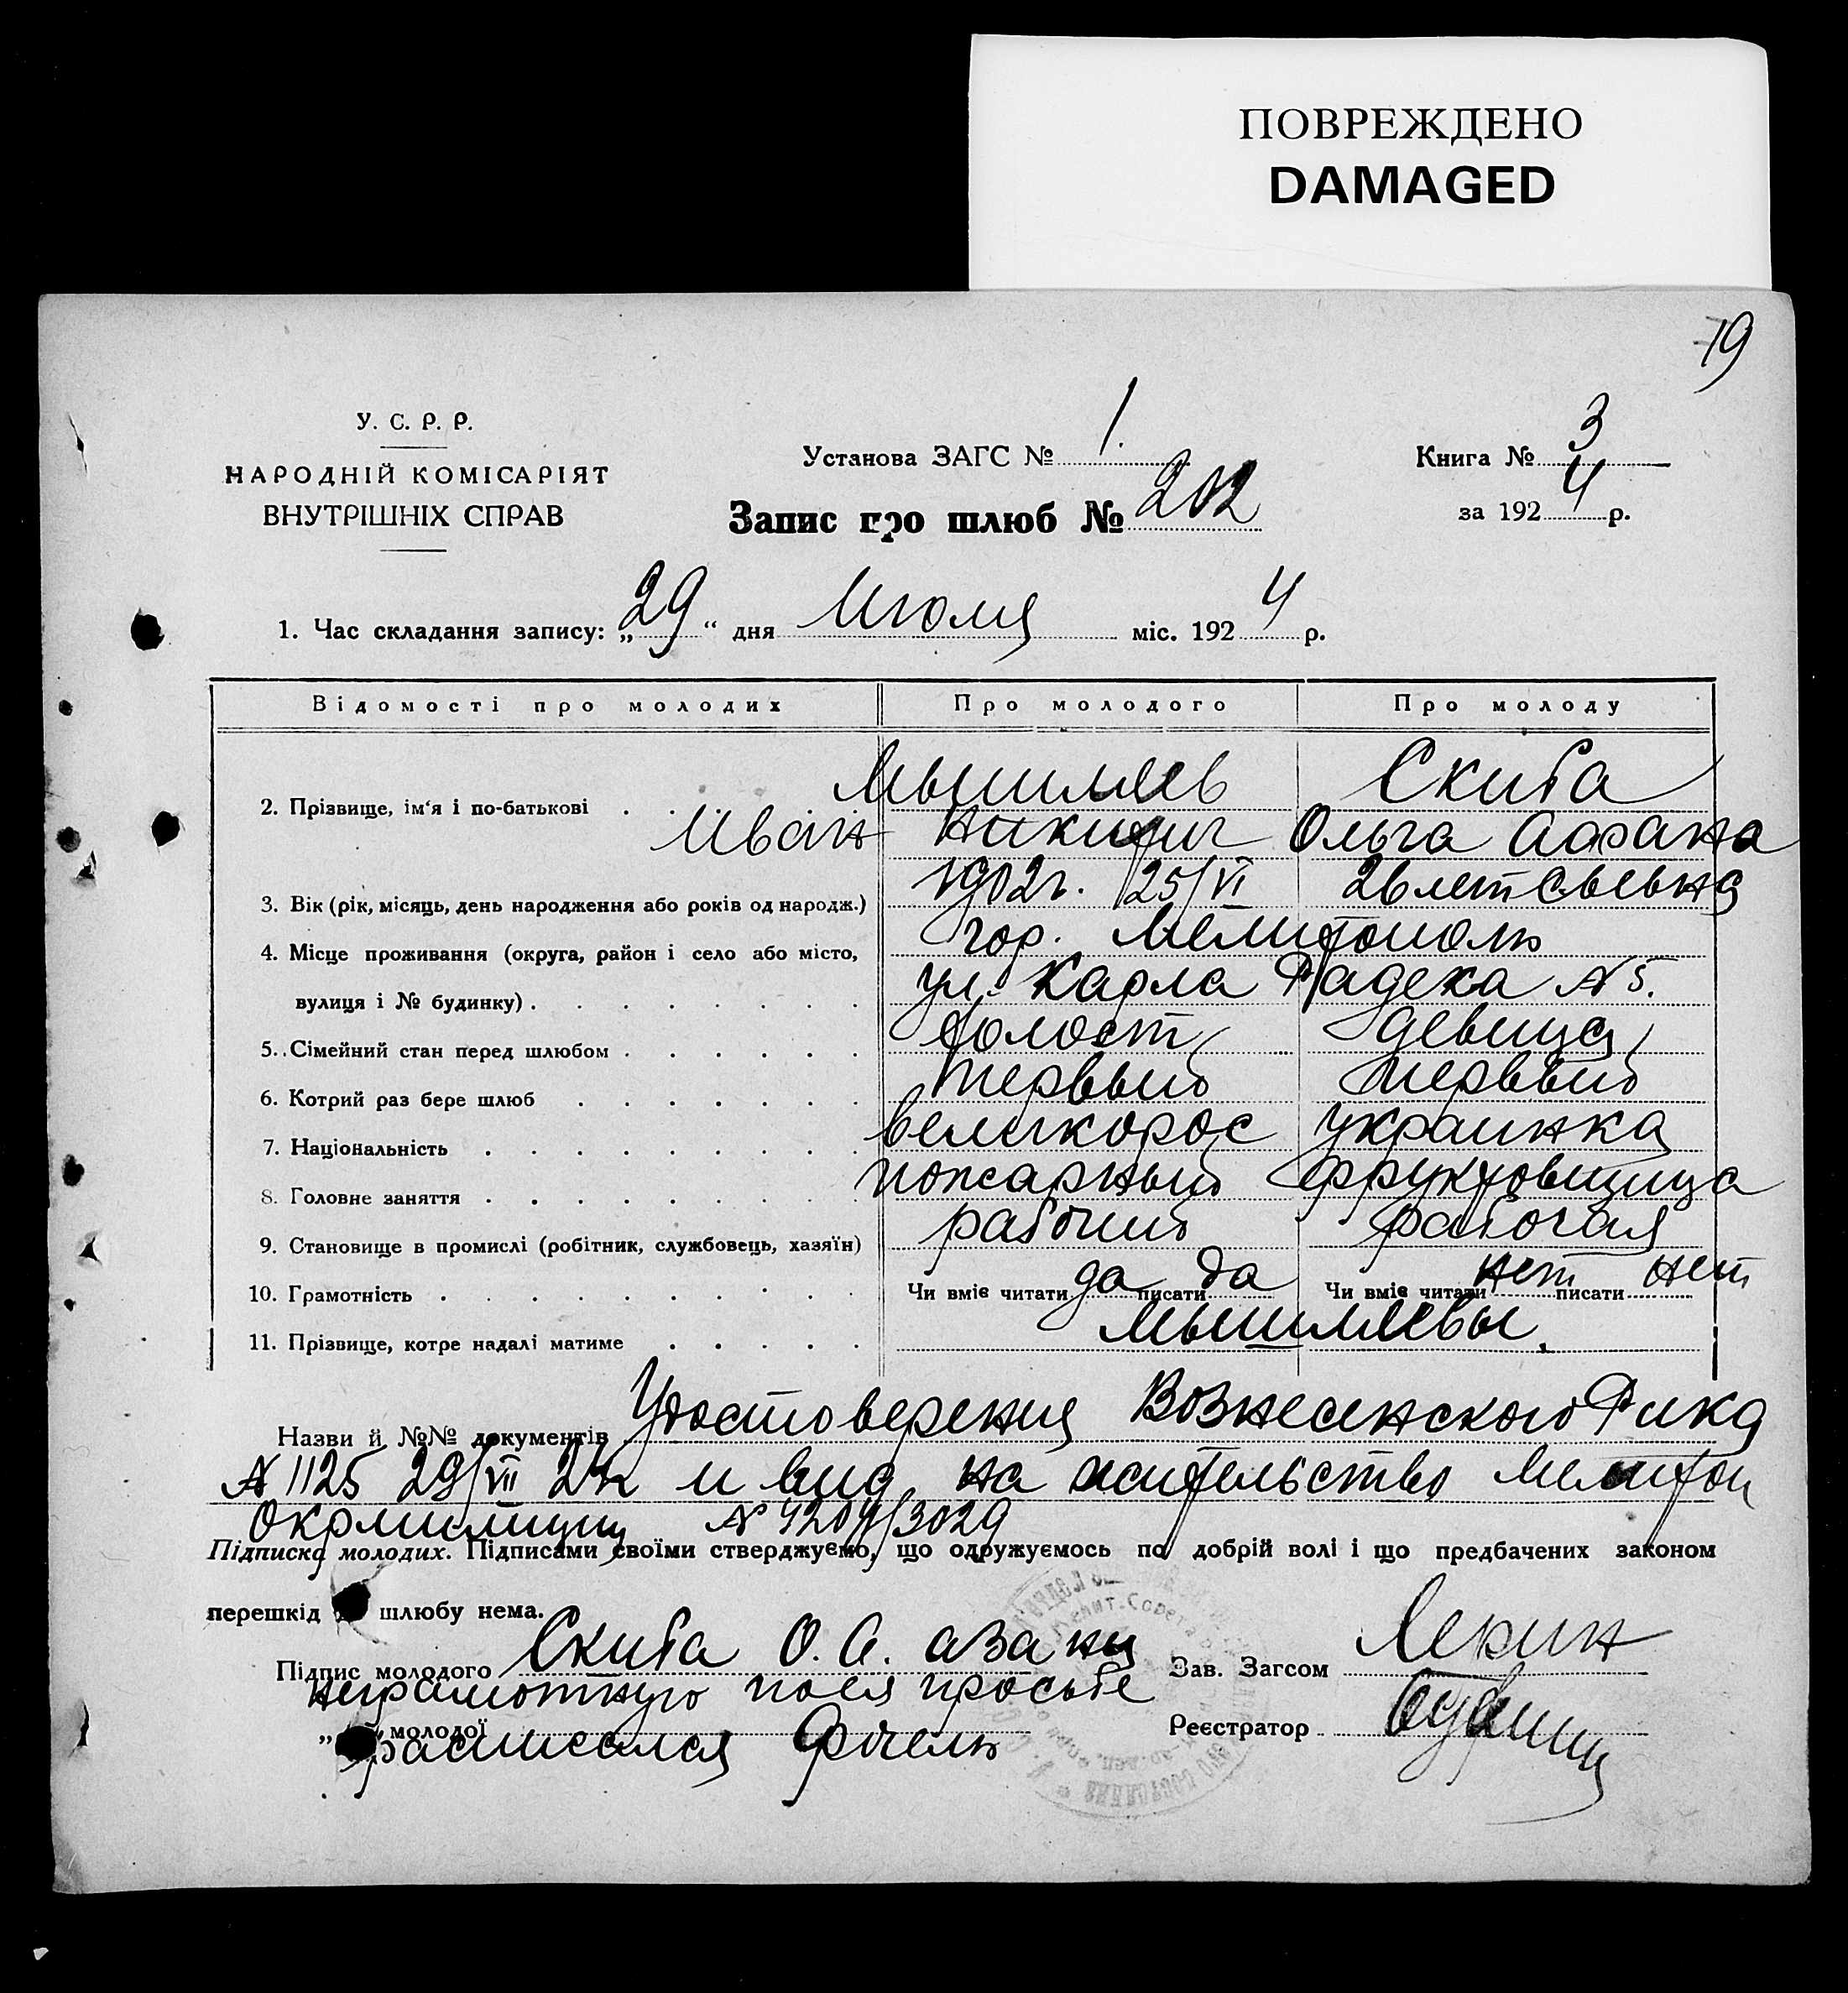 ПОВРЕЖДЕНО
DAMAGED
79
У. С. Р. Р.
НАРОДНІЙ КОМІСАРІЯТ
ВНУТРІШНІХ СПРАВ
Установа ЗАГС № 1.
Книга № 3
Запис про шлюб № 202
за 1924 р.
1. Час складання запису: „29“ дня Июля міс. 1924 р.
Відомості про молодих Про молодого Про молоду
Мышляев Скиба
2. Прізвище, ім‘я і по-батькові
Иван Никит Ольга Афана
3. Вік (рік, місяць, день народження або років од народж.) 1902г. 25/VI 26 лет сьевна
4. Місце проживання (округа, район і село або місто, гор. Мелитополь
вулиця і № будинку) ул. Карла Радека № 5.
5. Сімейний стан перед шлюбом холост девица
6. Котрий раз бере шлюб первый первый
7. Національність великорос украинка
8. Головне заняття пожарный фруктовщица
9. Становище в промислі (робітник, службовець, хазяїн) рабочий рабочая
10. Грамотність Чи вміє читати да писати да Чи вміє читати нет писати нет
11. Прізвище, котре надалі матиме Мышляевы.
Назви й №№ документів Удостоверения Вознесенского Рика
№ 1125 29/VII 24г и вид на жительство Мелитоп
Окрмилиции № 4204/3029
Підписка молодих. Підписами своїми стверджуємо, що одружуємось по добрій волі і що предбачених законом
перешкід шлюбу нема.
Підпис молодого Скиба О. А. а за нея Зав. Загсом
неграмотную по ея просьбе
„ молодої расписался Реєстратор